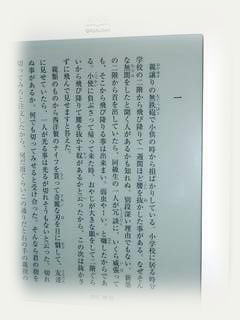 一
親譲りの無鉄砲で小供の時から損ばかりしている。小学校に居る時分
学校の二階から飛び降りて一週間ほど腰を抜かした事がある。なぜそん
な無闇をしたと聞く人があるかも知れぬ。別段深い理由でもない。新築
の二階から首を出していたら、同級生の一人が冗談に、いくら威張って
も、そこから飛び降りる事は出来まい。弱虫やーい。と囃したからであ
る。小使に負ぶさって帰って来た時、おやじが大きな眼をして二階ぐら
いから飛び降りて腰を抜かす奴があるかと云ったから、この次は抜かさ
ずに飛んで見せますと答えた。
親類のものから西洋製のナイフを貰って奇麗な刃を日に翳して、友達
に見せていたら、一人が光る事は光るが切れそうもないと云った。切れ
ぬ事があるか、何でも切ってみせると受け合った。そんなら君の指を
切ってみろと注文したから、何だ指ぐらいこの通りだと右の手の親指の